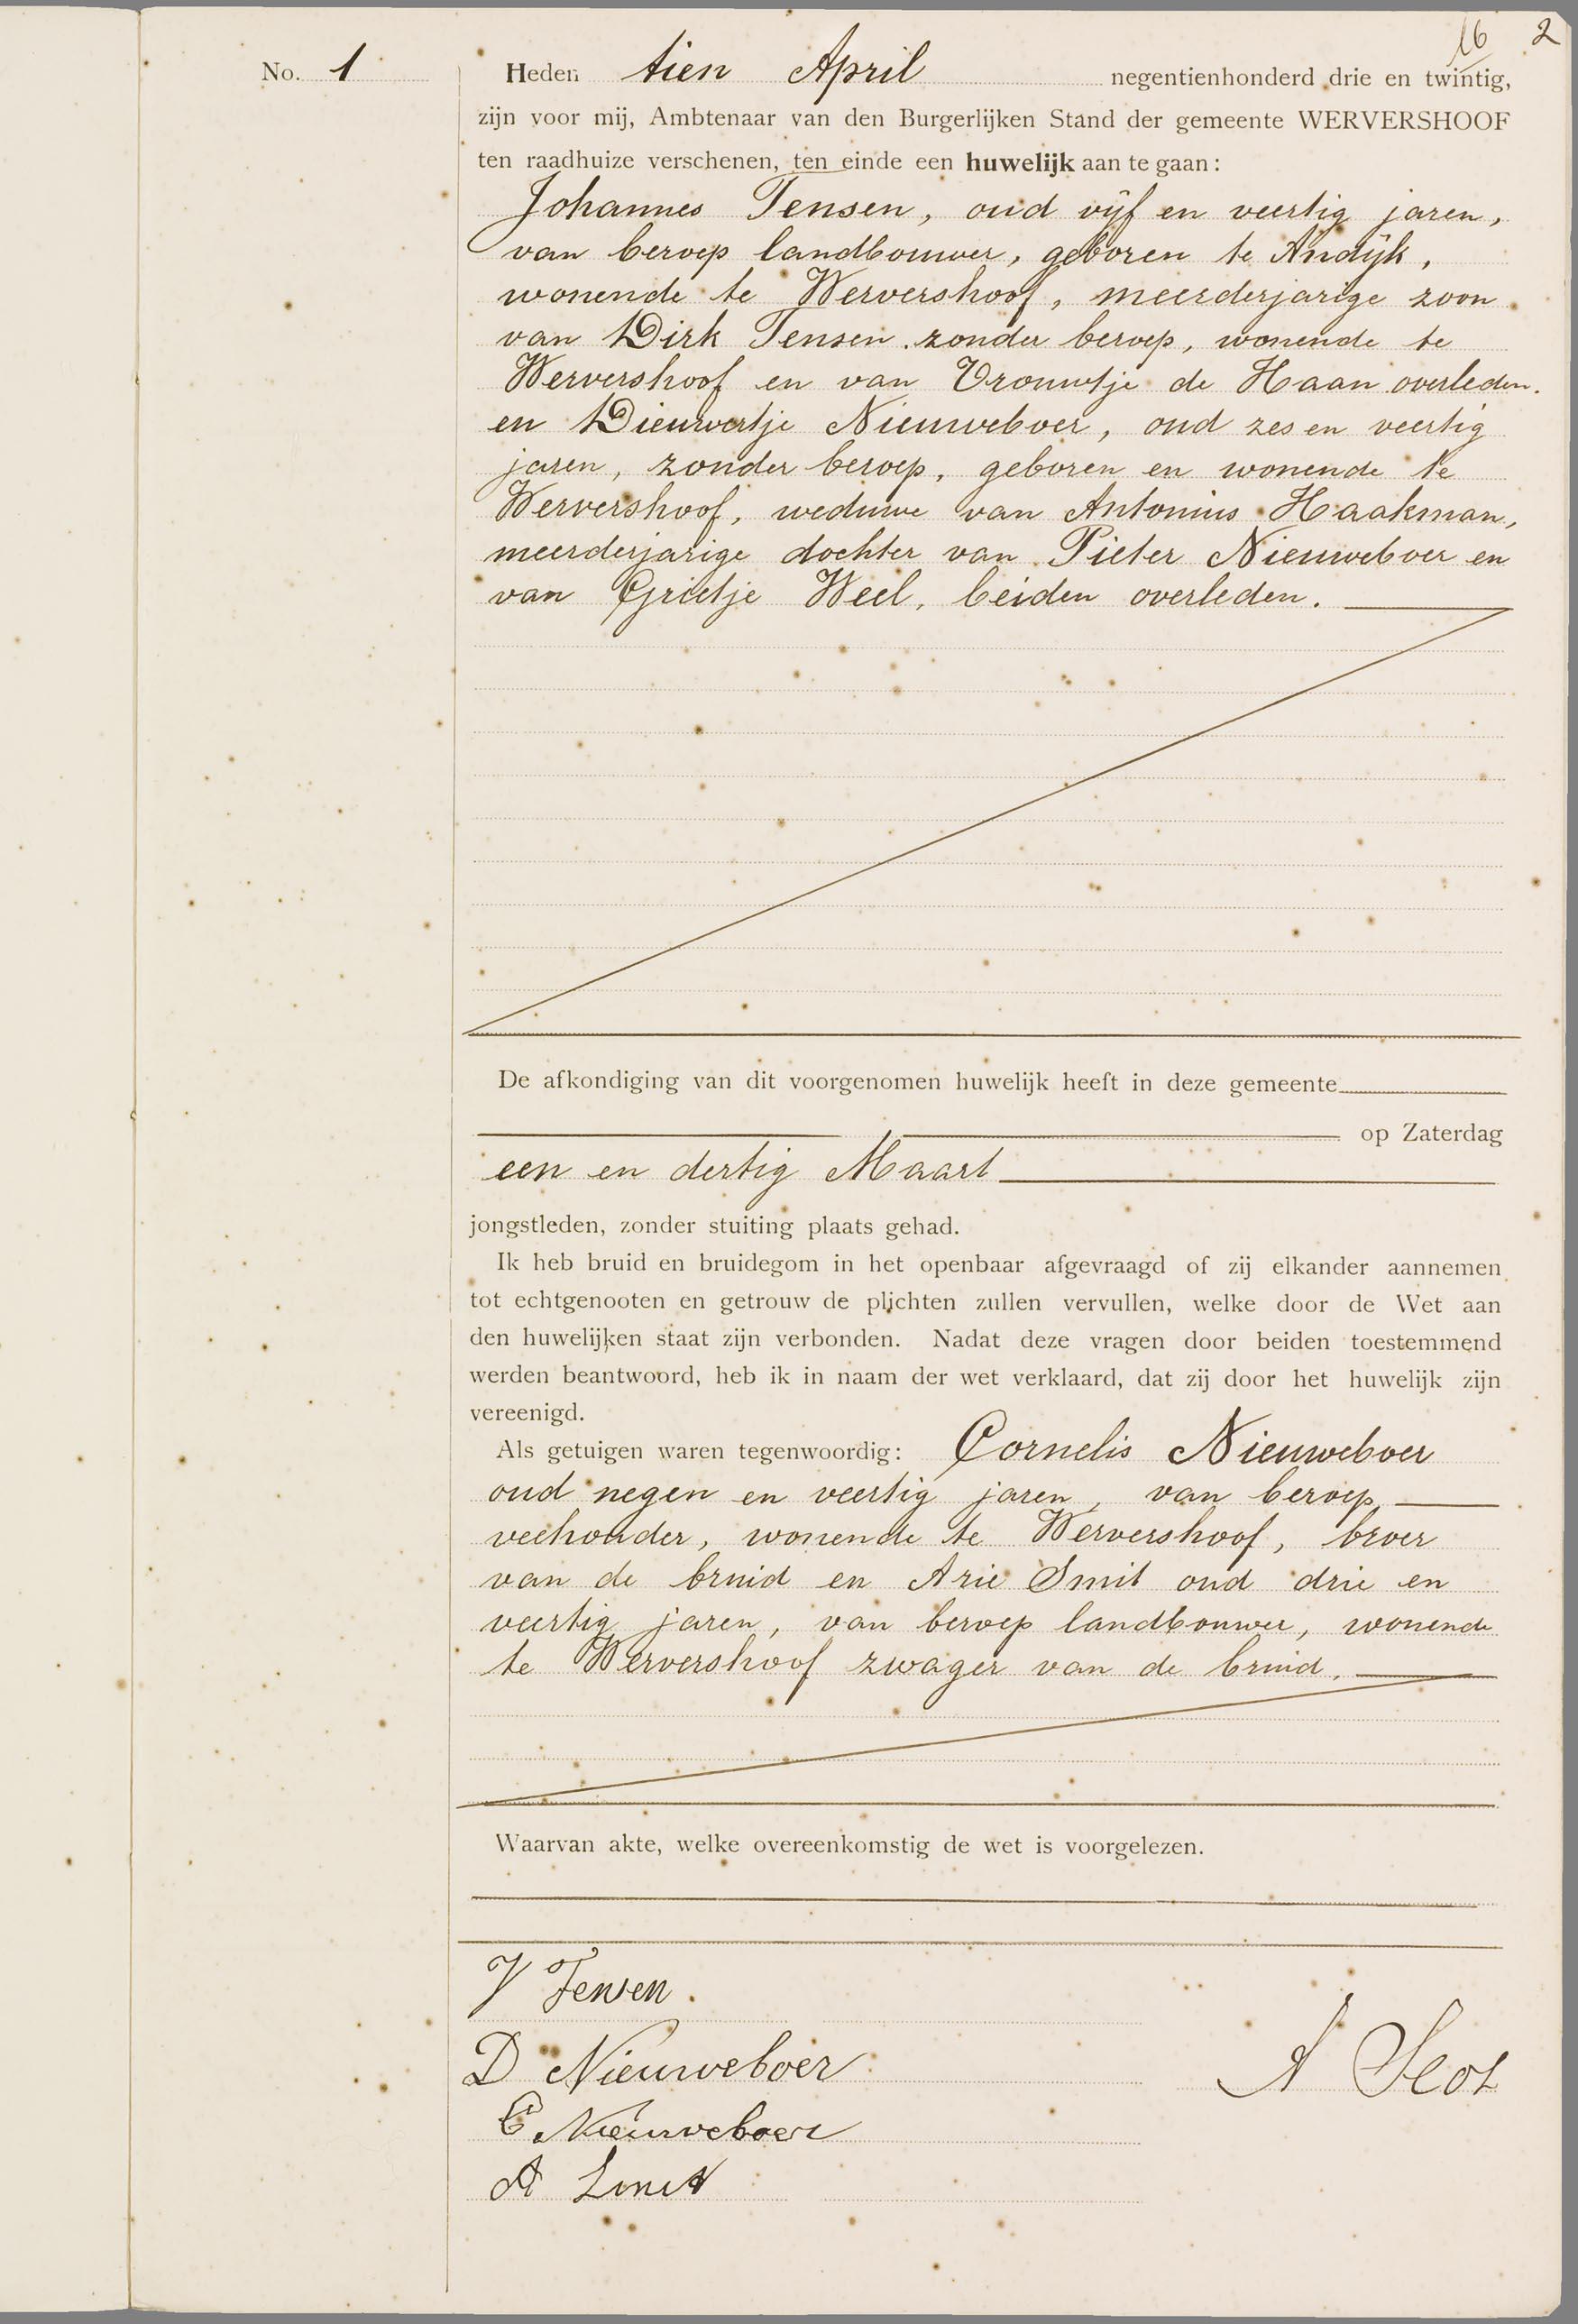 16 2
No. 1
Heden tien April negentienhonderd drie en twintig,
zijn voor mij, Ambtenaar van den Burgerlijken Stand der gemeente WERVERSHOOF
ten raadhuize verschenen, ten einde een huwelijk aan te gaan:
Johannes Tensen, oud vijf en veertig jaren,
van beroep landbouwer, geboren te Andijk,
wonende te Wervershoof, meerderjarige zoon
van Dirk Tensen zonder beroep, wonende te
Wervershoof en van Vrouwtje de Haan overleden.
en Dieuwertje Nieuweboer, oud zes en veertig
jaren, zonder beroep, geboren en wonende te
Wervershoof, weduwe van Antonius Haakman,
meerderjarige dochter van Pieter Nieuweboer en
van Grietje Weel, beiden overleden.
De afkondiging van dit voorgenomen huwelijk heeft in deze gemeente
op Zaterdag
een en dertig Maart
jongstleden, zonder stuiting plaats gehad.
Ik heb bruid en bruidegom in het openbaar afgevraagd of zij elkander aannemen
tot echtgenooten en getrouw de plichten zullen vervullen, welke door de Wet aan
den huwelijken staat zijn verbonden. Nadat deze vragen door beiden toestemmend
werden beantwoord, heb ik in naam der wet verklaard, dat zij door het huwelijk zijn
vereenigd.
Als getuigen waren tegenwoordig: Cornelis Nieuweboer
oud negen en veertig jaren, van beroep
veehouder, wonende te Wervershoof, broer
van de bruid en Arie Smit oud drie en
veertig jaren, van beroep landbouwer, wonende
te Wervershoof zwager van de bruid.
Waarvan akte, welke overeenkomstig de wet is voorgelezen.
J Tensen.
D Nieuweboer
A Slot
C Nieuweboer
A Smit